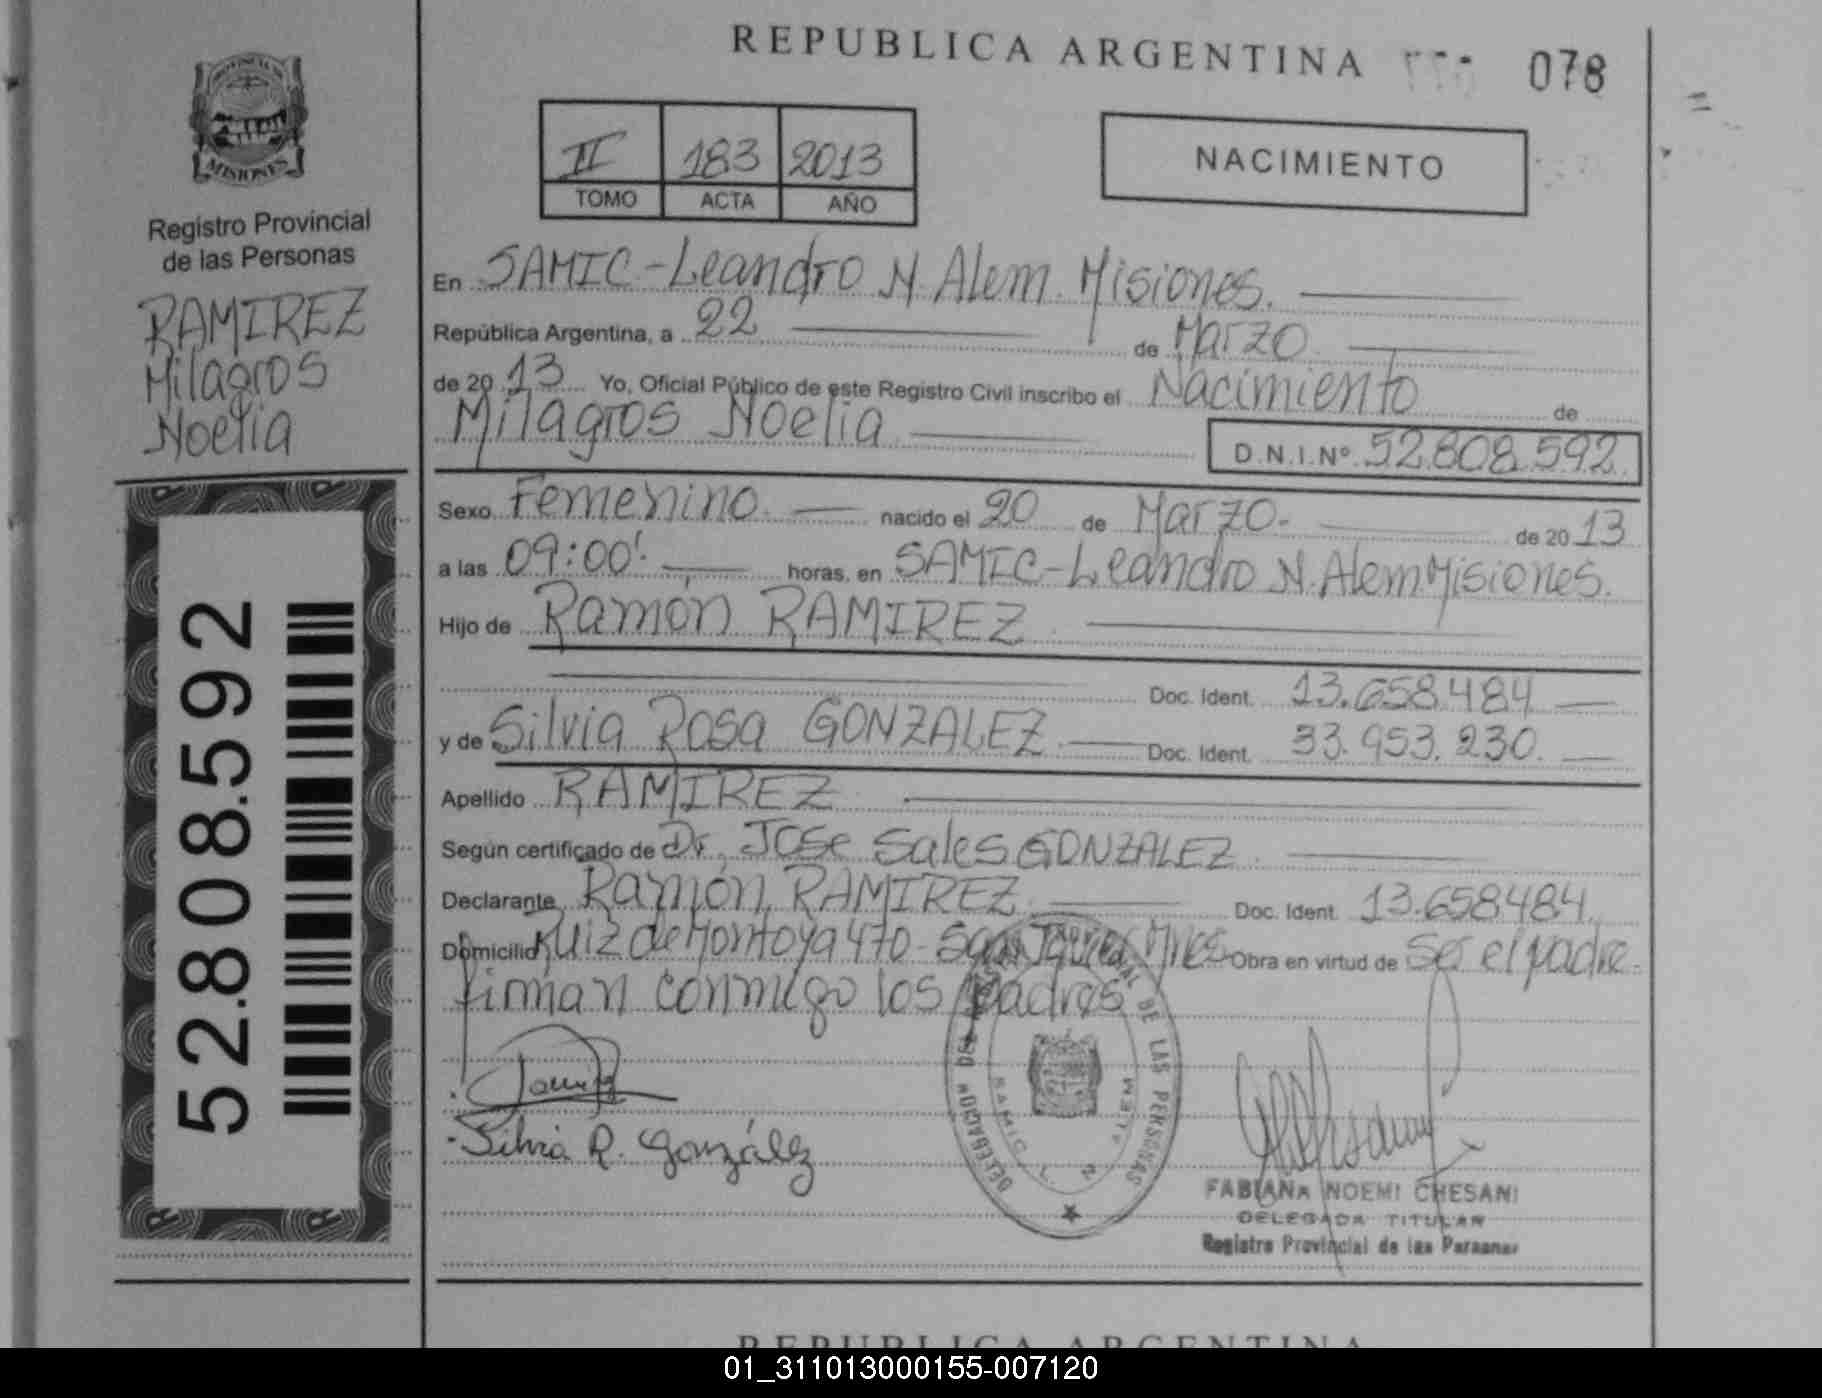 REPUBLICA ARGENTINA
078
PROVINCIA DE
MISIONES
Registro Provincial
de las Personas
RAMIREZ
Milagros
Noelia
52.808.592
II 183 2013
TOMO ACTA AÑO
NACIMIENTO
En SAMIC-Leandro N. Alem. Misiones.
República Argentina, a 22 de Marzo
de 2013 Yo, Oficial Público de este Registro Civil inscribo el Nacimiento de
Milagros Noelia D.N.I.Nº 52.808.592
Sexo Femenino. nacido el 20 de Marzo. de 2013
a las 09:00'. horas, en SAMIC-Leandro N. Alem. Misiones.
Hijo de Ramón RAMIREZ
Doc. Ident. 13.658.484
y de Silvia Rosa GONZALEZ Doc. Ident. 33.953.230.
Apellido RAMIREZ
Según certificado de Dr. Jose Sales GONZALEZ
Declarante Ramón RAMIREZ Doc. Ident. 13.658.484.
Domicilio Ruiz de Montoya 470- San Mnes Obra en virtud de ser el padre.
firman conmigo los padres
Silvia R. González
DELEGACION DE LAS PERSONAS
SAMIC L. N. ALEM
FABIANA NOEMI CHESANI
DELEGADA TITULAR
Registro Provincial de las Personas
REPUBLICA ARGENTINA
01_311013000155-007120